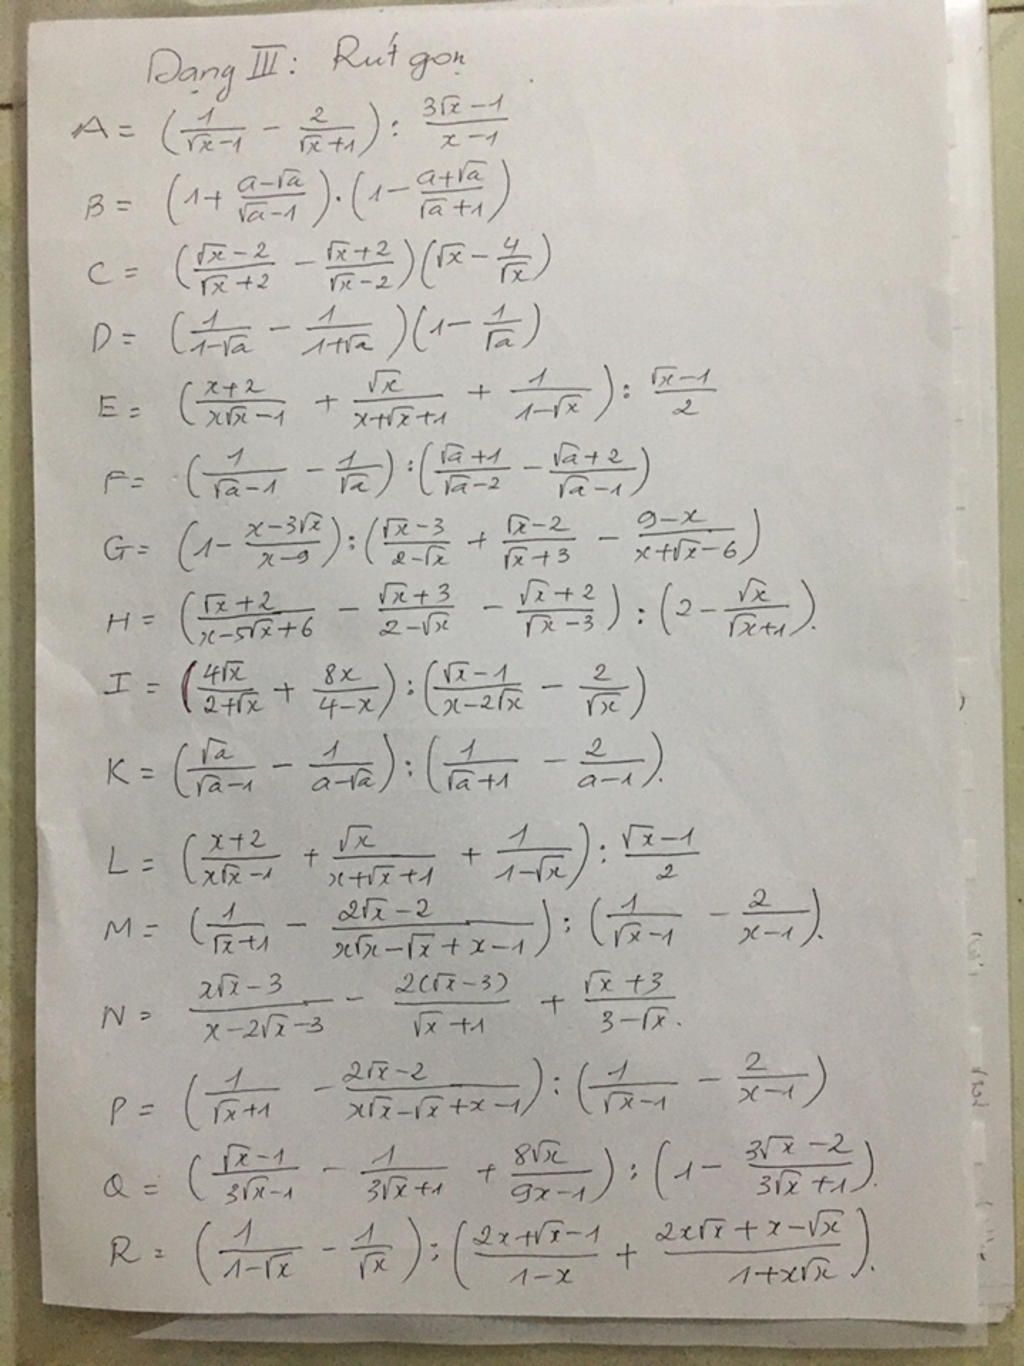 Dạng III: Rút gọn
A = (1/(√x-1) - 2/(√x+1)) : (3√x-1)/(x-1)
B = (1 + (a-√a)/(√a-1)) . (1 - (a+√a)/(√a+1))
C = ((√x-2)/(√x+2) - (√x+2)/(√x-2)) (√x - 4/√x)
D = (1/(1-√a) - 1/(1+√a)) (1 - 1/√a)
E = ((x+2)/(x√x-1) + √x/(x+√x+1) + 1/(1-√x)) : (√x-1)/2
F = (1/(√a-1) - 1/√a) : ((√a+1)/(√a-2) - (√a+2)/(√a-1))
G = (1 - (x-3√x)/(x-9)) : ((√x-3)/(2-√x) + (√x-2)/(√x+3) - (9-x)/(x+√x-6))
H = ((√x+2)/(x-5√x+6) - (√x+3)/(2-√x) - (√x+2)/(√x-3)) : (2 - √x/(√x+1)).
I = (4√x/(2+√x) + 8x/(4-x)) : ((√x-1)/(x-2√x) - 2/√x)
K = (√a/(√a-1) - 1/(a-√a)) : (1/(√a+1) - 2/(a-1)).
L = ((x+2)/(x√x-1) + √x/(x+√x+1) + 1/(1-√x)) : (√x-1)/2
M = (1/(√x+1) - (2√x-2)/(x√x-√x+x-1)) : (1/(√x-1) - 2/(x-1)).
N = (x√x-3)/(x-2√x-3) - 2(√x-3)/(√x+1) + (√x+3)/(3-√x).
P = (1/(√x+1) - (2√x-2)/(x√x-√x+x-1)) : (1/(√x-1) - 2/(x-1))
Q = ((√x-1)/(3√x-1) - 1/(3√x+1) + 8√x/(9x-1)) : (1 - (3√x-2)/(3√x+1)).
R = (1/(1-√x) - 1/√x) : ((2x+√x-1)/(1-x) + (2x√x+x-√x)/(1+x√x)).